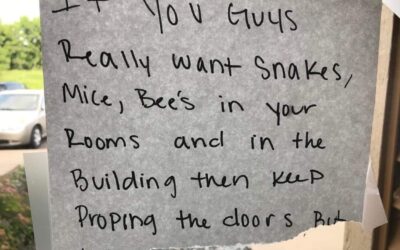 If You Guys
Really want Snakes,
Mice, Bee's in your
Rooms and in the
Building then keep
Proping the doors But